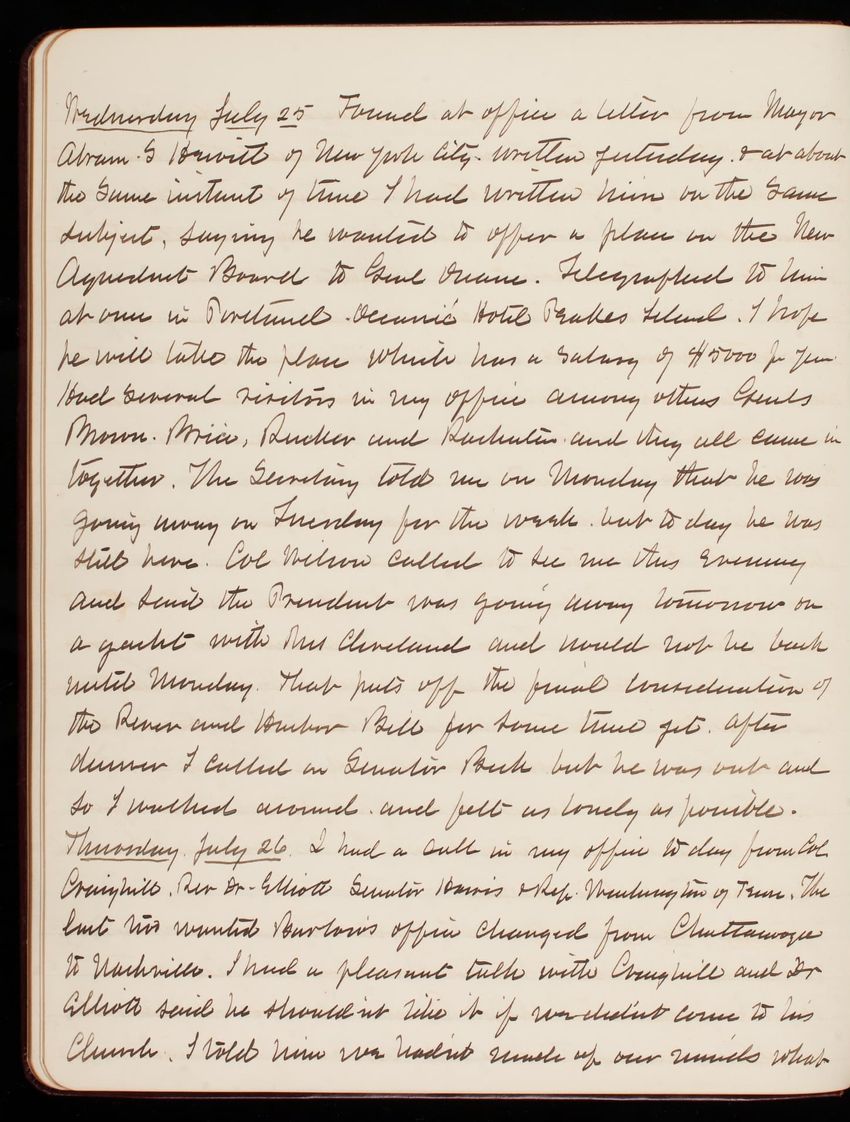 Wednesday July 25 Found at office a letter from Mayor
Abram S Hewitt of New York City. written yesterday. & at about
the same instant of time I had written him on the same
subject, saying he wanted to offer a place on the New
Aqueduct Board to Genl Duane. Telegraphed to him
at once in Portland. Oceanic Hotel Peakes Island. I hope
he will take the place which has a salary of $5000 pr year
Had several visitors in my office among others Genls
Brown. Brice, Rucker and and they all came in
together. The Secretary told me on Monday that he was
going away on Tuesday for the week. but to day he was
still here. Col Wilson called to see me this evening
and said the President was going away tomorrow on
a yacht with Mrs Cleveland and would not be back
until Monday. That puts off the final consideration of
the River and Harbor Bill for some time yet. After
dinner I called on Senator Beck but he was out and
so I walked around. and felt as lonely as possible.
Thursday. July 26. I had a call in my office to day from Col
Craighill. Rev Dr. Elliott Senator Harris & Rep. Washington of Tenn. The
last two wanted Barlow's office changed from Chattanooga
to Nashville. I had a pleasant talk with Craighill and Dr
Elliott said he should'nt like it if we did'nt come to his
Church. I told him we had'nt made up our minds what